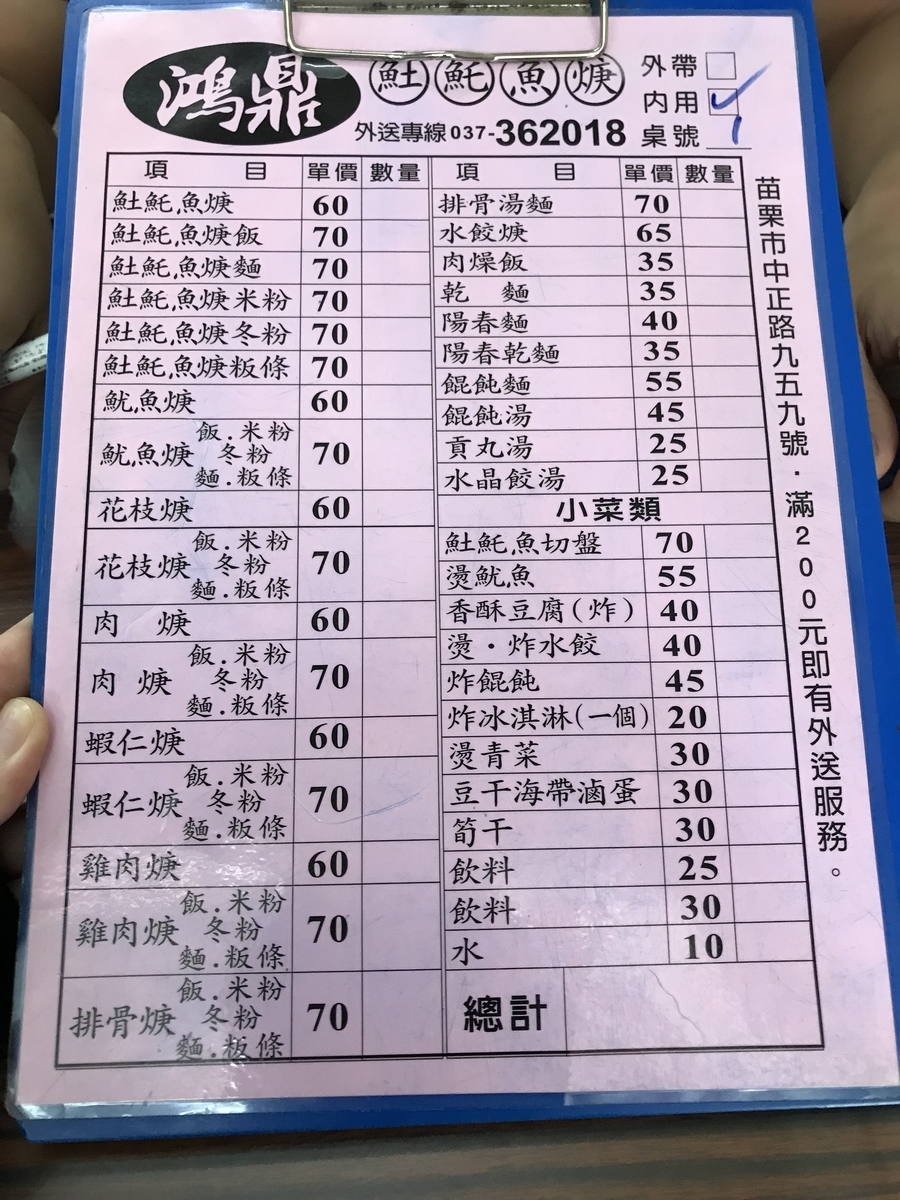 鴻鼎
䰾魠魚焿
外送專線037-362018
外帶
內用 ✓
桌號 1
項目 單價 數量
䰾魠魚焿 60
䰾魠魚焿飯 70
䰾魠魚焿麵 70
䰾魠魚焿米粉 70
䰾魠魚焿冬粉 70
䰾魠魚焿粄條 70
魷魚焿 60
魷魚焿 飯.米粉 冬粉 麵.粄條 70
花枝焿 60
花枝焿 飯.米粉 冬粉 麵.粄條 70
肉 焿 60
肉 焿 飯.米粉 冬粉 麵.粄條 70
蝦仁焿 60
蝦仁焿 飯.米粉 冬粉 麵.粄條 70
雞肉焿 60
雞肉焿 飯.米粉 冬粉 麵.粄條 70
排骨焿 飯.米粉 冬粉 麵.粄條 70
項目 單價 數量
排骨湯麵 70
水餃焿 65
肉燥飯 35
乾 麵 35
陽春麵 40
陽春乾麵 35
餛飩麵 55
餛飩湯 45
貢丸湯 25
水晶餃湯 25
小菜類
䰾魠魚切盤 70
燙魷魚 55
香酥豆腐(炸) 40
燙・炸水餃 40
炸餛飩 45
炸冰淇淋(一個) 20
燙青菜 30
豆干海帶滷蛋 30
筍干 30
飲料 25
飲料 30
水 10
總計
苗栗市中正路九五九號・滿200元即有外送服務。